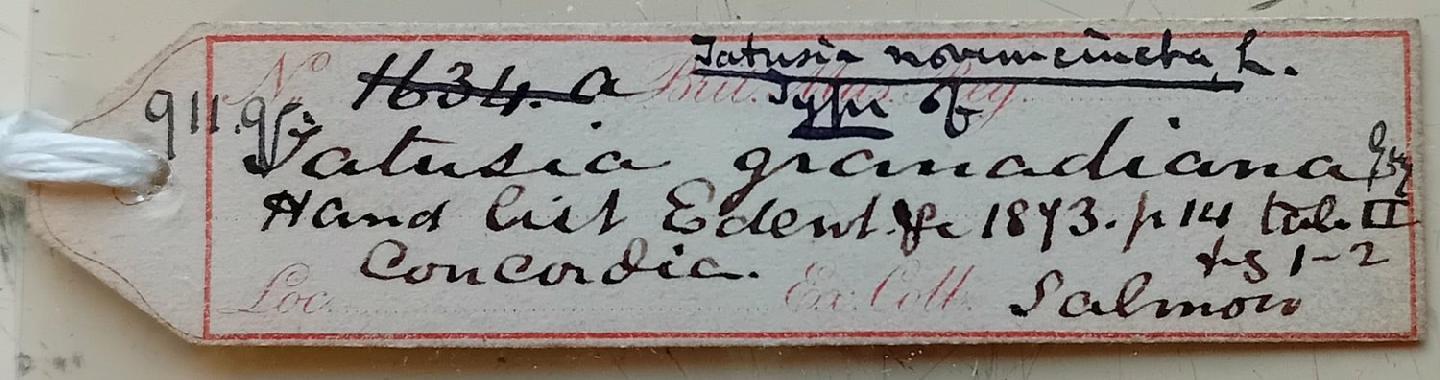 Tatusia novemcincta, L.
No. 1634. a Brit. Mus. Reg.
Type of
911.
Tatusia granadiana Gray
Hand list Edent. &c 1873. p 14 tab. II
fig 1-2
Concordia.
Loc. Ex. Coll. Salmon